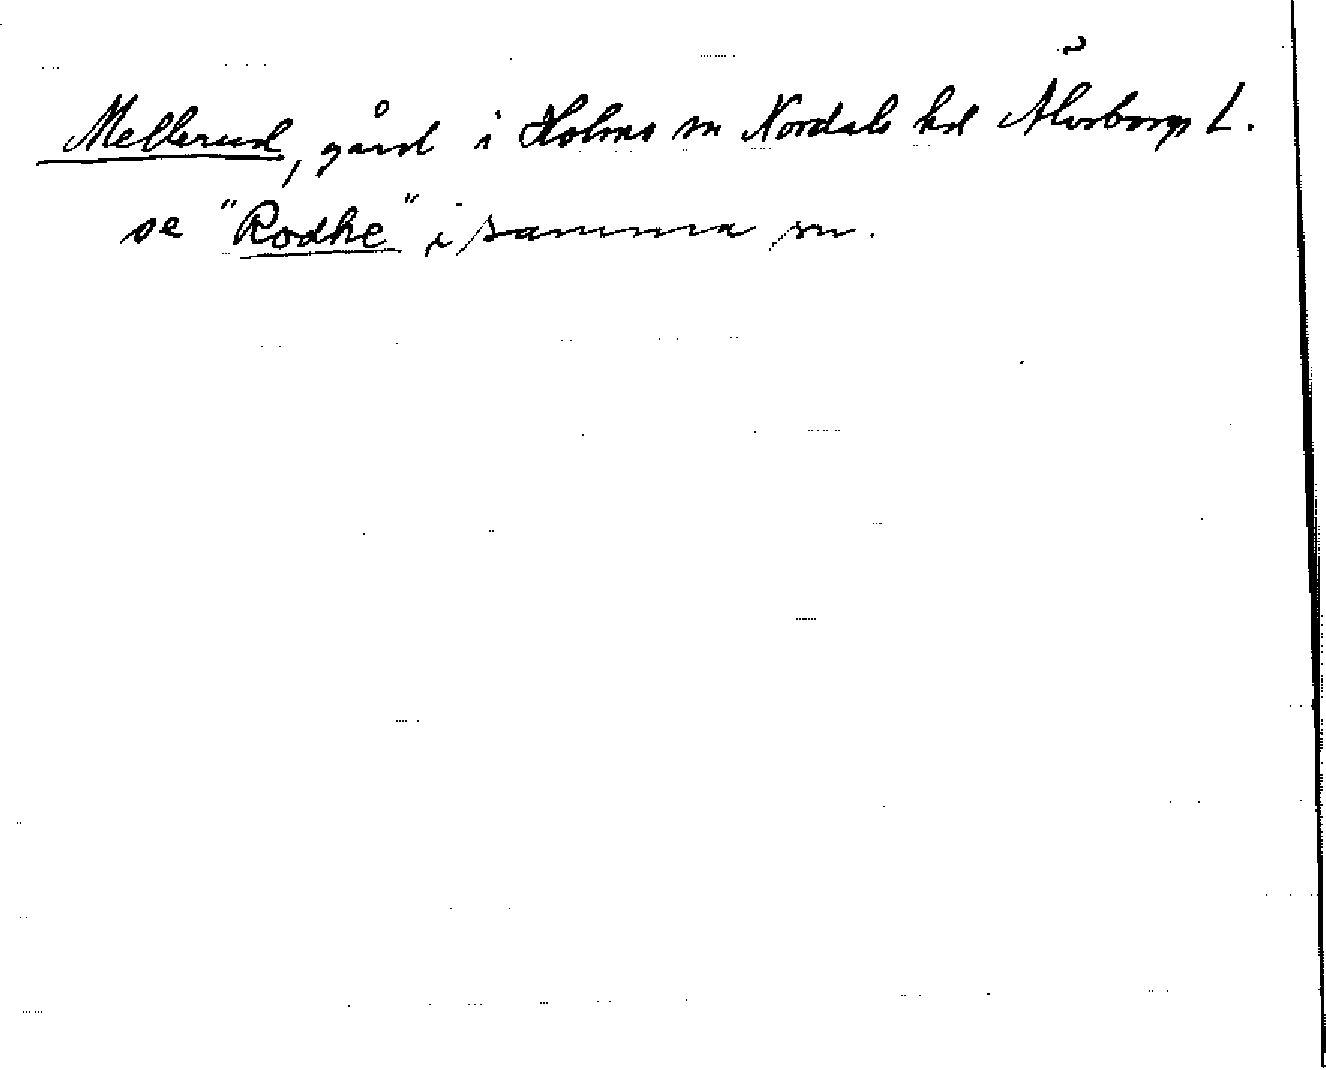 Mellerud, gård i Holms sn Nordals hd Älvsborgs L.
se "Rodhe" i samma sn.